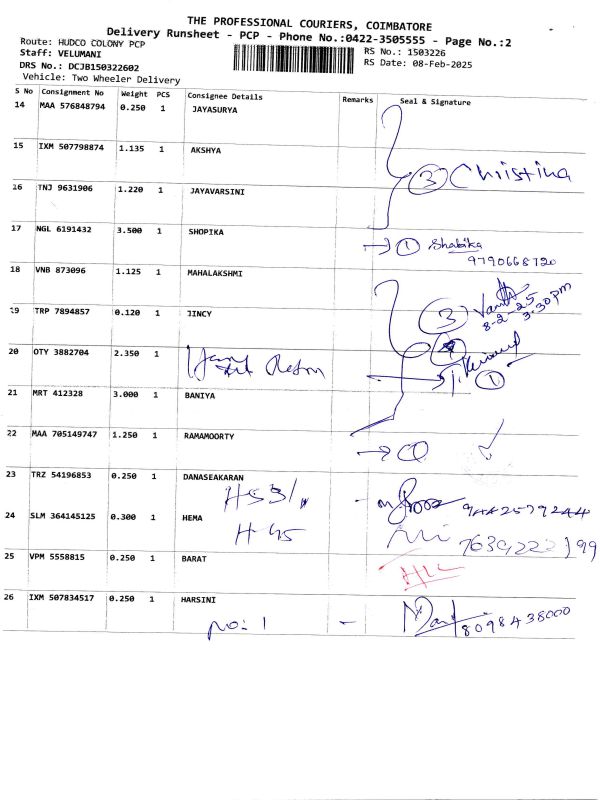 THE PROFESSIONAL COURIERS, COIMBATORE
Delivery Runsheet - PCP - Phone No.:0422-3505555 - Page No.:2
Route: HUDCO COLONY PCP
RS No.: 1503226
Staff: VELUMANI
RS Date: 08-Feb-2025
DRS No.: DCJB150322602
Vehicle: Two Wheeler Delivery
S No Consignment No Weight PCS Consignee Details Remarks Seal & Signature
14 MAA 576848794 0.250 1 JAYASURYA
15 IXM 507798874 1.135 1 AKSHYA
③ Christina
16 TNJ 9631906 1.220 1 JAYAVARSINI
17 NGL 6191432 3.500 1 SHOPIKA
→ ① Shabika
9790668720
18 VNB 873096 1.125 1 MAHALAKSHMI
19 TRP 7894857 0.120 1 JINCY
③
8-2-25
3.30 pm
20 OTY 3882704 2.350 1
①
21 MRT 412328 3.000 1 BANIYA
22 MAA 705149747 1.250 1 RAMAMOORTY
23 TRZ 54196853 0.250 1 DANASEAKARAN
H53/
24 SLM 364145125 0.300 1 HEMA
H 45
25 VPM 5558815 0.250 1 BARAT
26 IXM 507834517 0.250 1 HARSINI
no: 1 -
8098438000